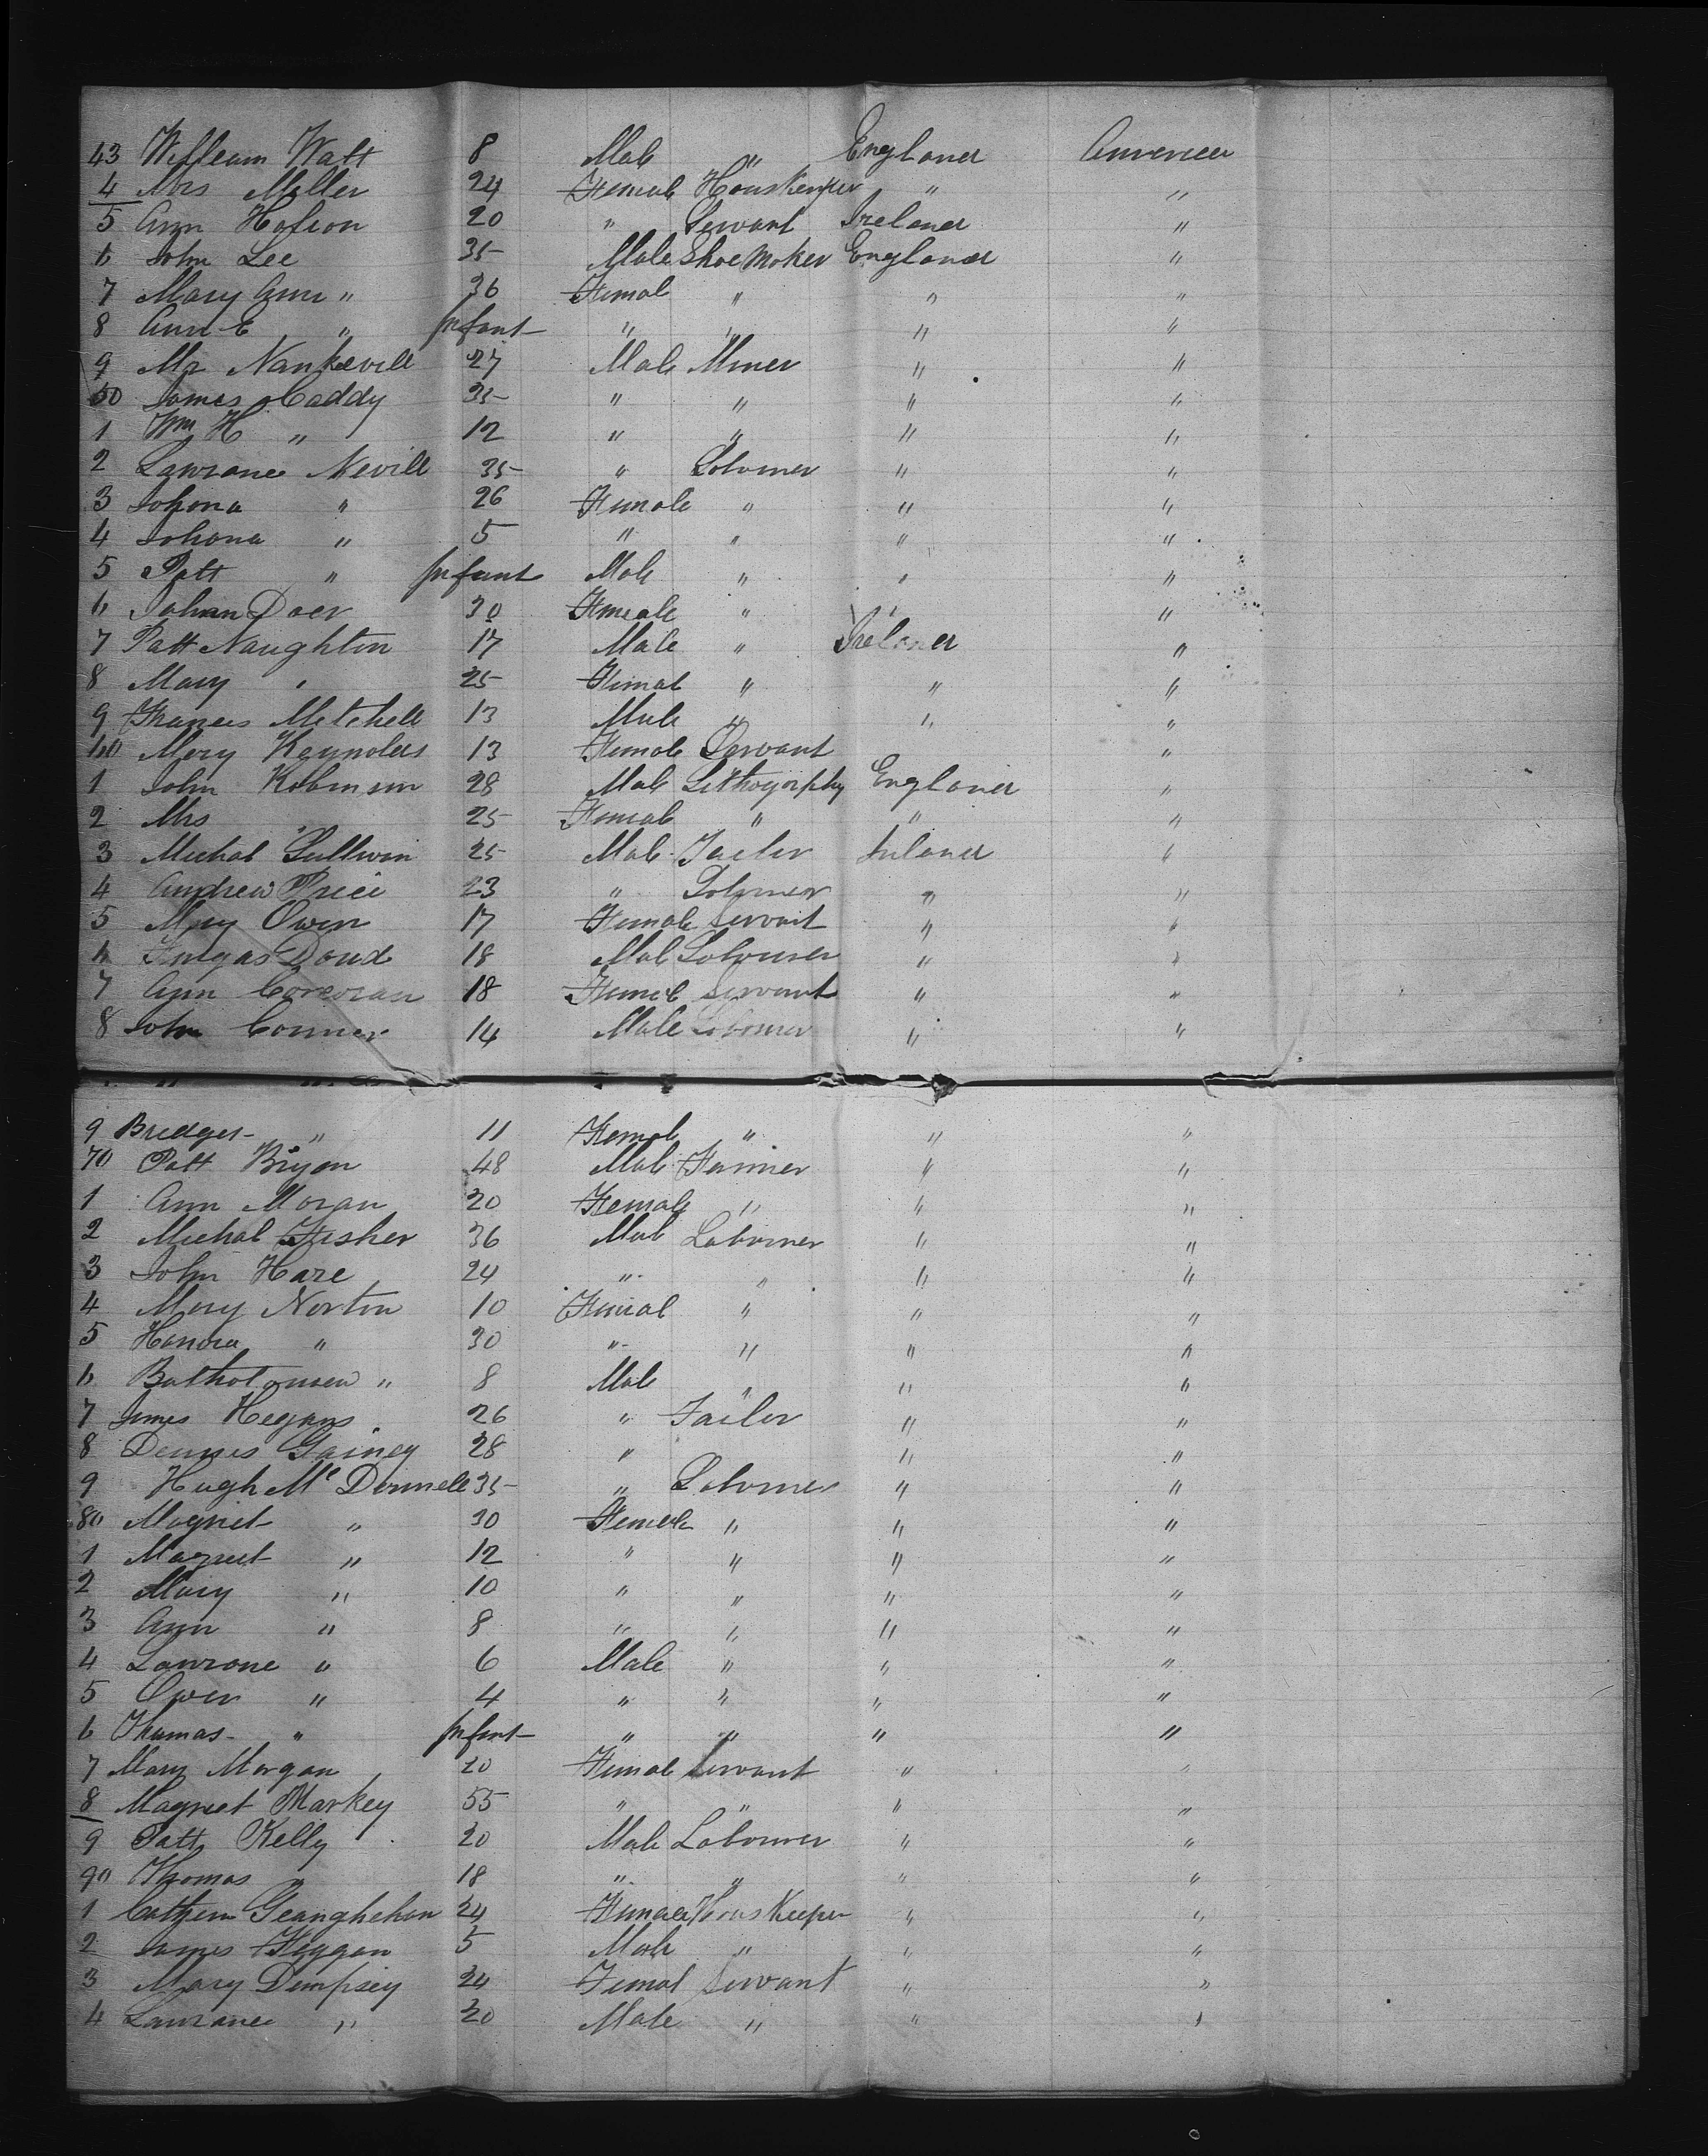 43 William Watt 8 Male " England America
4 Mrs Miller 24 Female Houskeeper " "
5 Ann 20 " Servant Ireland "
6 John Lee 35 Male Shoe Maker England "
7 Mary Ann " 36 Femal " " "
8 Ann E " Infant " " " "
9 Mr Nankevill 27 Male Miner " "
50 James Caddy 35 " " " "
1 Wm H " 12 " " " "
2 Lawrane Nevill 35 " Labourer " "
3 Johona " 26 Female " " "
4 Johana " 5 " " " "
5 Patt " Infant Male " " "
6 Johan Doer 30 Female " " "
7 Patt Naughton 17 Male " Ireland "
8 Mary " 25 Femal " " "
9 Frances Mitchell 13 Male " " "
60 Mary Reynolds 13 Female Servant "
1 John Robinson 28 Male Lithogorphy England "
2 Mrs " 25 Female " " "
3 Michal Sullivin 25 Male Tailor Ireland "
4 Andrew Price 23 " Labourer " "
5 Mary Owen 17 Female Servant " "
6 Doud 18 Male Labourer " "
7 Ann Corcoran 18 Female Servant " "
8 John Conner 14 Male Labourer " "
9 Bredget " 11 Femal " " "
70 Patt Bryan 48 Male Farmer " "
1 Ann Moran 20 Female " " "
2 Michal Fisher 36 Male Labourer " "
3 John Hare 24 " " " "
4 Mary Norton 10 Femal " " "
5 Honora " 30 " " " "
6 Batholomew " 8 Male " " "
7 James Hegans 26 " Tailor " "
8 Dennis Gainey 28 " " "
9 Hugh Mc Donnell 35 " Labourer " "
80 Magriet " 30 Female " " "
1 Magriet " 12 " " " "
2 Mary " 10 " " " "
3 Ann " 8 " " " "
4 Lawrane " 6 Male " " "
5 Owen " 4 " " " "
6 Thomas " Infant " " " "
7 Mary Morgan 20 Female Servant " "
8 Magriet Markey 55 " " " "
9 Patt Kelly 20 Male Labourer " "
90 Thomas " 18 " " " "
1 Cathern Geanghehan 24 Female Hous Keeper " "
2 James Heggan 5 Male " " "
3 Mary Dempsey 24 Femal Servant " "
4 Lawrane " 20 Male " " "